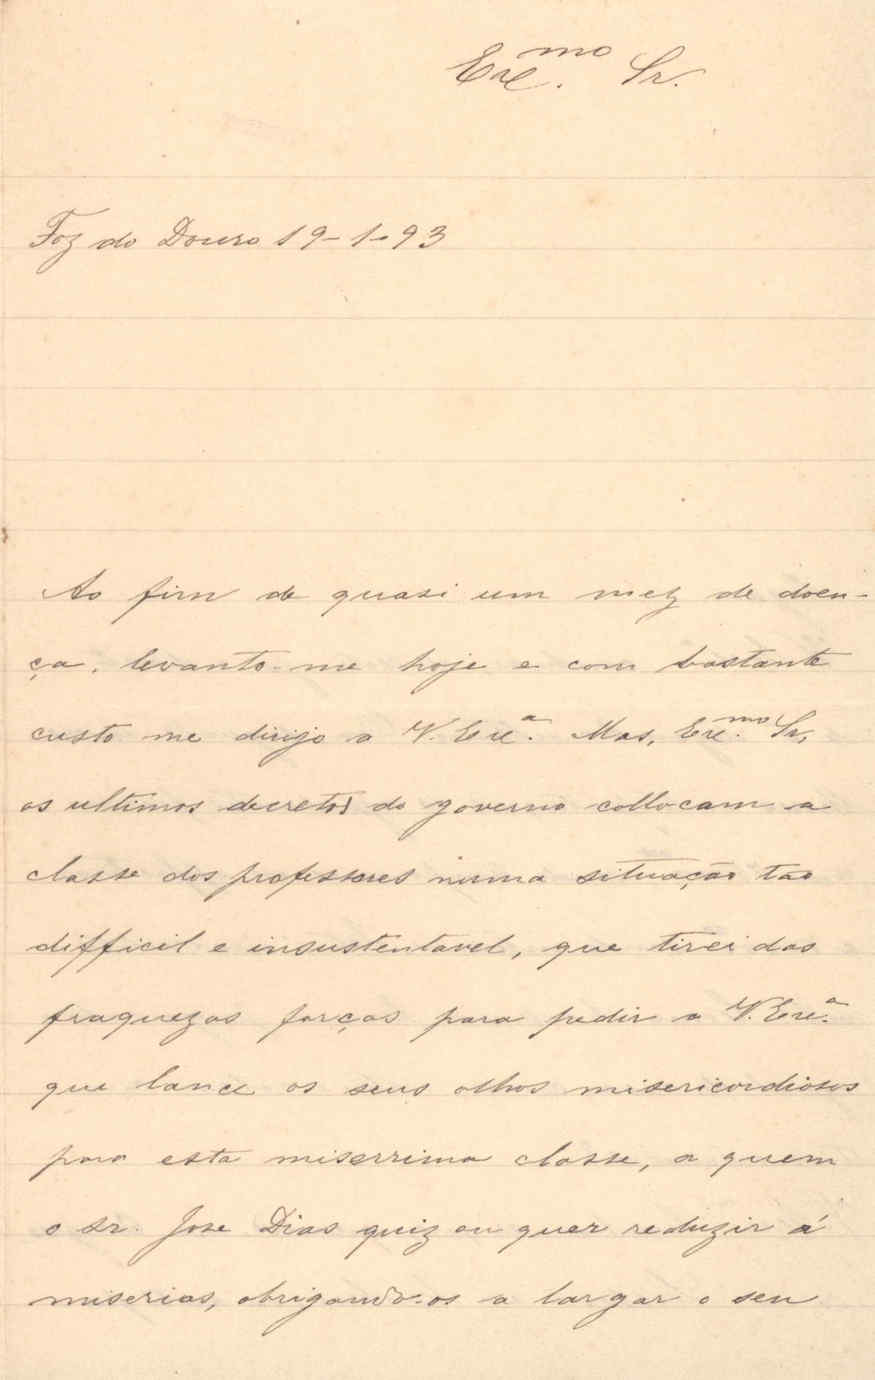 Exc.mo Sr.
Foz do Douro 19-1-93
Ao fim de quasi um mez de doen-
ça, levanto-me hoje e com bastante
custo me dirijo a V. Exc.a. Mas, Exc.mo Sr,
os ultimos decretos do governo collocam a
classe dos professores numa situação tão
difficil e insustentavel, que tirei das
fraquezas forças para pedir a V. Exc.a
que lance os seus olhos misericordiosos
para esta miserrima classe, a quem
o sr. Jose Dias quiz ou quer reduzir á
miserias, obrigando-os a largar o seu